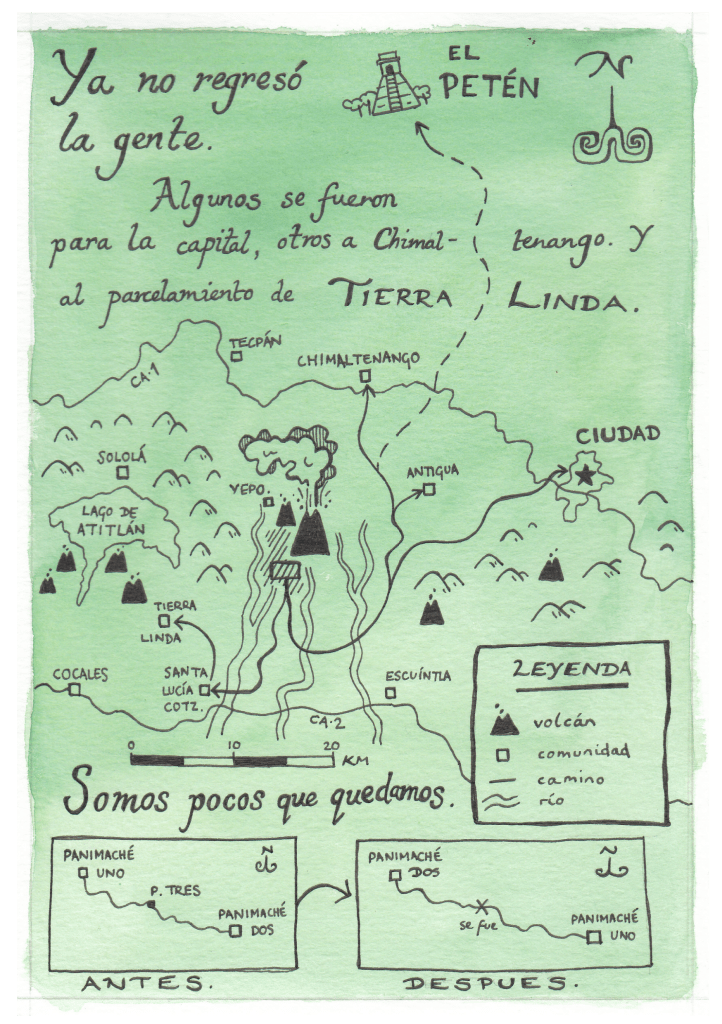 Ya no regresó
la gente.
EL
PETÉN
N
Algunos se fueron
para la capital, otros a Chimal-
tenango. Y
al parcelamiento de TIERRA LINDA.
TECPÁN
CA-1
CHIMALTENANGO
CIUDAD
SOLOLÁ
YEPO.
ANTIGUA
LAGO DE
ATITLÁN
TIERRA
LINDA
COCALES
SANTA
LUCÍA
COTZ.
ESCUÍNTLA
CA-2
0 10 20
KM
LEYENDA
volcán
comunidad
camino
río
Somos pocos que quedamos.
PANIMACHÉ
UNO
N
P. TRES
PANIMACHÉ
DOS
ANTES.
PANIMACHÉ
DOS
N
se fue
PANIMACHÉ
UNO
DESPUES.